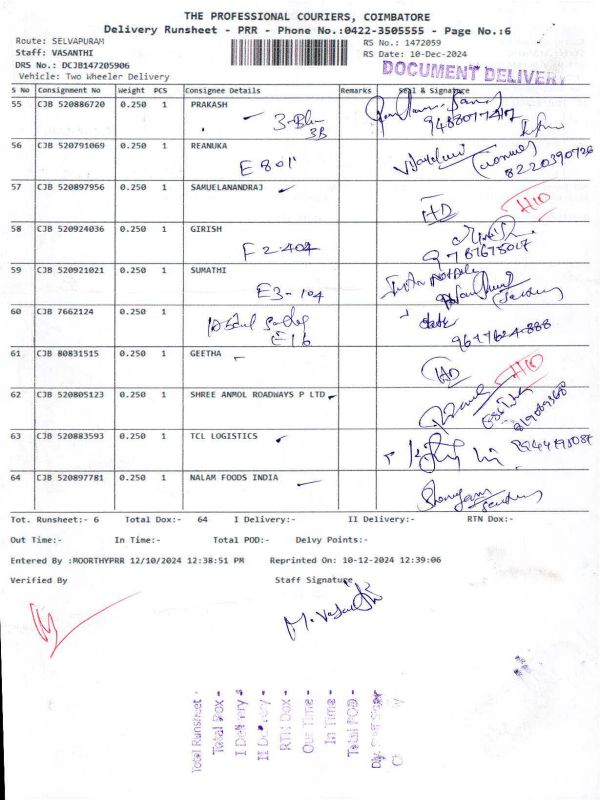 THE PROFESSIONAL COURIERS, COIMBATORE
Delivery Runsheet - PRR - Phone No.:0422-3505555 - Page No.:6
Route: SELVAPURAM
RS No.: 1472059
Staff: VASANTHI
RS Date: 10-Dec-2024
DRS No.: DCJB147205906
Vehicle: Two Wheeler Delivery
DOCUMENT DELIVERY
S No Consignment No Weight PCS Consignee Details Remarks Seal & Signature
55 CJB 520886720 0.250 1 PRAKASH
3B
56 CJB 520791069 0.250 1 REANUKA
E 801
8220390726
57 CJB 520897956 0.250 1 SAMUELANANDRAJ
HD HID
58 CJB 520924036 0.250 1 GIRISH
F2-404
59 CJB 520921021 0.250 1 SUMATHI
E3-104
60 CJB 7662124 0.250 1
E16
61 CJB 80831515 0.250 1 GEETHA
HD HID
62 CJB 520805123 0.250 1 SHREE ANMOL ROADWAYS P LTD
63 CJB 520883593 0.250 1 TCL LOGISTICS
64 CJB 520897781 0.250 1 NALAM FOODS INDIA
Tot. Runsheet:- 6 Total Dox:- 64 I Delivery:- II Delivery:- RTN Dox:-
Out Time:- In Time:- Total POD:- Delvy Points:-
Entered By :MOORTHYPRR 12/10/2024 12:38:51 PM Reprinted On: 10-12-2024 12:39:06
Verified By Staff Signature
M. Vasanthi
Total Runsheet -
Total Dox -
I Delivery -
II Delivery -
RTN Dox -
Out Time -
In Time -
Total POD -